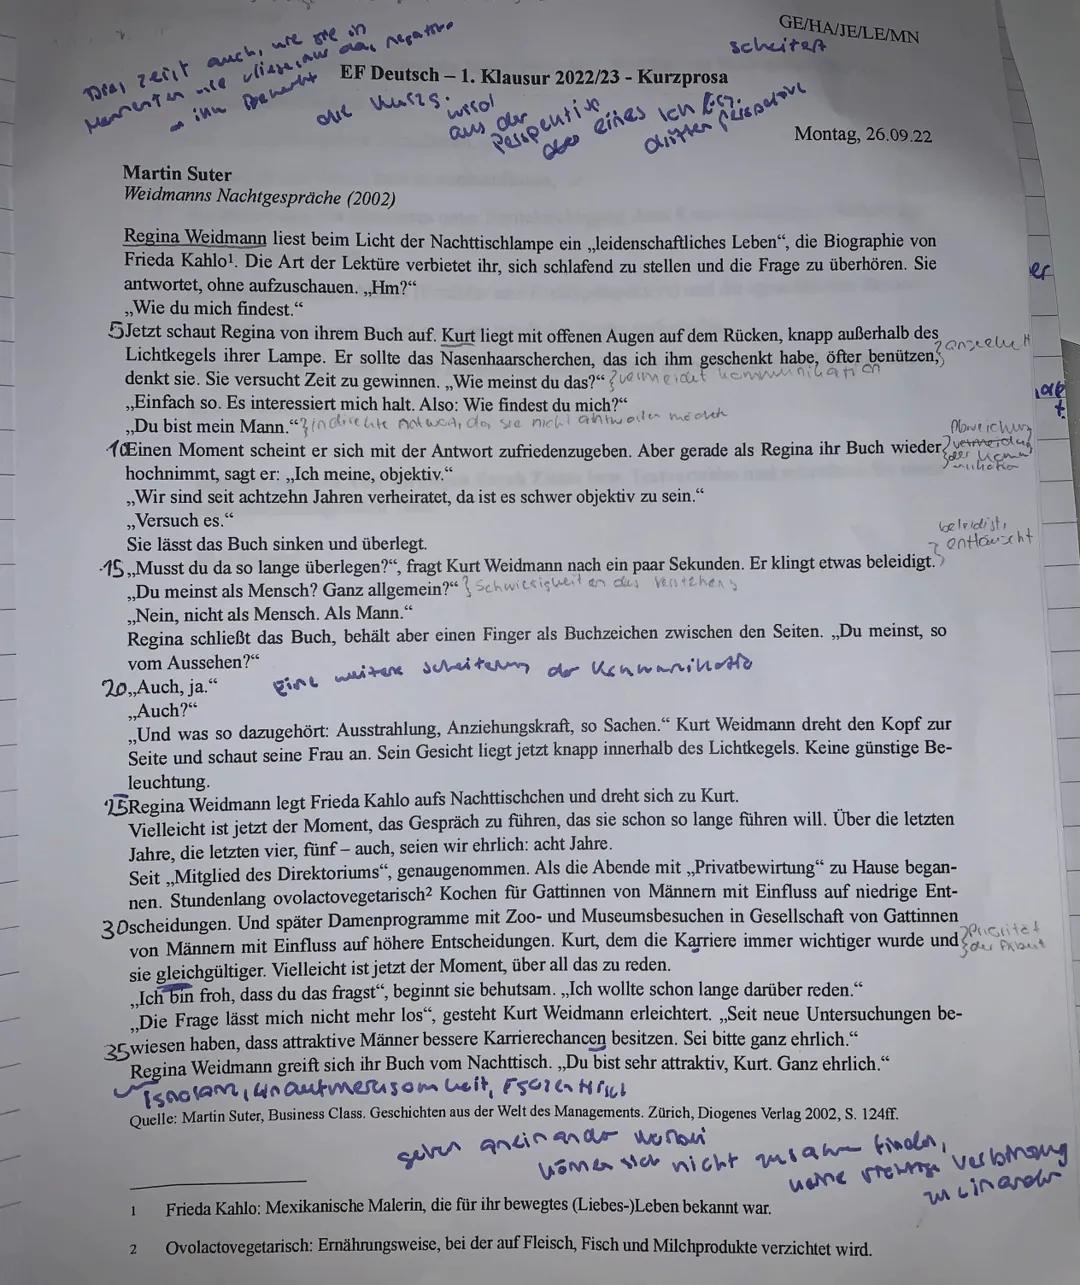 GE/HA/JE/LE/MN
scheitert
Das zeigt auch, wie sie in
Momenten wie diese, nur das negative
an ihm bemerkt
EF Deutsch – 1. Klausur 2022/23 - Kurzprosa
die Kurzg. wird
aus der
Perspektive
eines Ich Erz.
dritten Perspektive
Montag, 26.09.22
Martin Suter
Weidmanns Nachtgespräche (2002)
Regina Weidmann liest beim Licht der Nachttischlampe ein „leidenschaftliches Leben“, die Biographie von
Frieda Kahlo¹. Die Art der Lektüre verbietet ihr, sich schlafend zu stellen und die Frage zu überhören. Sie
antwortet, ohne aufzuschauen. „Hm?“
„Wie du mich findest.“
5 Jetzt schaut Regina von ihrem Buch auf. Kurt liegt mit offenen Augen auf dem Rücken, knapp außerhalb des
Lichtkegels ihrer Lampe. Er sollte das Nasenhaarscherchen, das ich ihm geschenkt habe, öfter benützen,
denkt sie. Sie versucht Zeit zu gewinnen. „Wie meinst du das?“ vermeidet Kommunikation
„Einfach so. Es interessiert mich halt. Also: Wie findest du mich?“
„Du bist mein Mann.“ indirekte Antwort, da sie nicht antworten möchte
10 Einen Moment scheint er sich mit der Antwort zufriedenzugeben. Aber gerade als Regina ihr Buch wieder
Abweichung
vermeidung
der Kommu
nikation
hochnimmt, sagt er: „Ich meine, objektiv.“
„Wir sind seit achtzehn Jahren verheiratet, da ist es schwer objektiv zu sein.“
„Versuch es.“
Sie lässt das Buch sinken und überlegt.
beleidigt,
enttäuscht
15 „Musst du da so lange überlegen?“, fragt Kurt Weidmann nach ein paar Sekunden. Er klingt etwas beleidigt.
„Du meinst als Mensch? Ganz allgemein?“ Schwierigkeiten des Verstehens
„Nein, nicht als Mensch. Als Mann.“
Regina schließt das Buch, behält aber einen Finger als Buchzeichen zwischen den Seiten. „Du meinst, so
vom Aussehen?“
20 „Auch, ja.“ Eine weitere scheiterung der Kommunikatio
„Auch?“
„Und was so dazugehört: Ausstrahlung, Anziehungskraft, so Sachen.“ Kurt Weidmann dreht den Kopf zur
Seite und schaut seine Frau an. Sein Gesicht liegt jetzt knapp innerhalb des Lichtkegels. Keine günstige Be-
leuchtung.
25 Regina Weidmann legt Frieda Kahlo aufs Nachttischchen und dreht sich zu Kurt.
Vielleicht ist jetzt der Moment, das Gespräch zu führen, das sie schon so lange führen will. Über die letzten
Jahre, die letzten vier, fünf – auch, seien wir ehrlich: acht Jahre.
Seit „Mitglied des Direktoriums“, genaugenommen. Als die Abende mit „Privatbewirtung“ zu Hause began-
nen. Stundenlang ovolactovegetarisch² Kochen für Gattinnen von Männern mit Einfluss auf niedrige Ent-
30 scheidungen. Und später Damenprogramme mit Zoo- und Museumsbesuchen in Gesellschaft von Gattinnen
von Männern mit Einfluss auf höhere Entscheidungen. Kurt, dem die Karriere immer wichtiger wurde und
Priorität
der Arbeit
sie gleichgültiger. Vielleicht ist jetzt der Moment, über all das zu reden.
„Ich bin froh, dass du das fragst“, beginnt sie behutsam. „Ich wollte schon lange darüber reden.“
„Die Frage lässt mich nicht mehr los“, gesteht Kurt Weidmann erleichtert. „Seit neue Untersuchungen be-
35 wiesen haben, dass attraktive Männer bessere Karrierechancen besitzen. Sei bitte ganz ehrlich.“
Regina Weidmann greift sich ihr Buch vom Nachttisch. „Du bist sehr attraktiv, Kurt. Ganz ehrlich.“
Ignoranz, Unaufmerksamkeit, Egozentrisch
Quelle: Martin Suter, Business Class. Geschichten aus der Welt des Managements. Zürich, Diogenes Verlag 2002, S. 124ff.
gehen aneinander vorbei
können sich nicht zusamm finden,
keine richtige verbindung
zu einander
1 Frieda Kahlo: Mexikanische Malerin, die für ihr bewegtes (Liebes-)Leben bekannt war.
2 Ovolactovegetarisch: Ernährungsweise, bei der auf Fleisch, Fisch und Milchprodukte verzichtet wird.